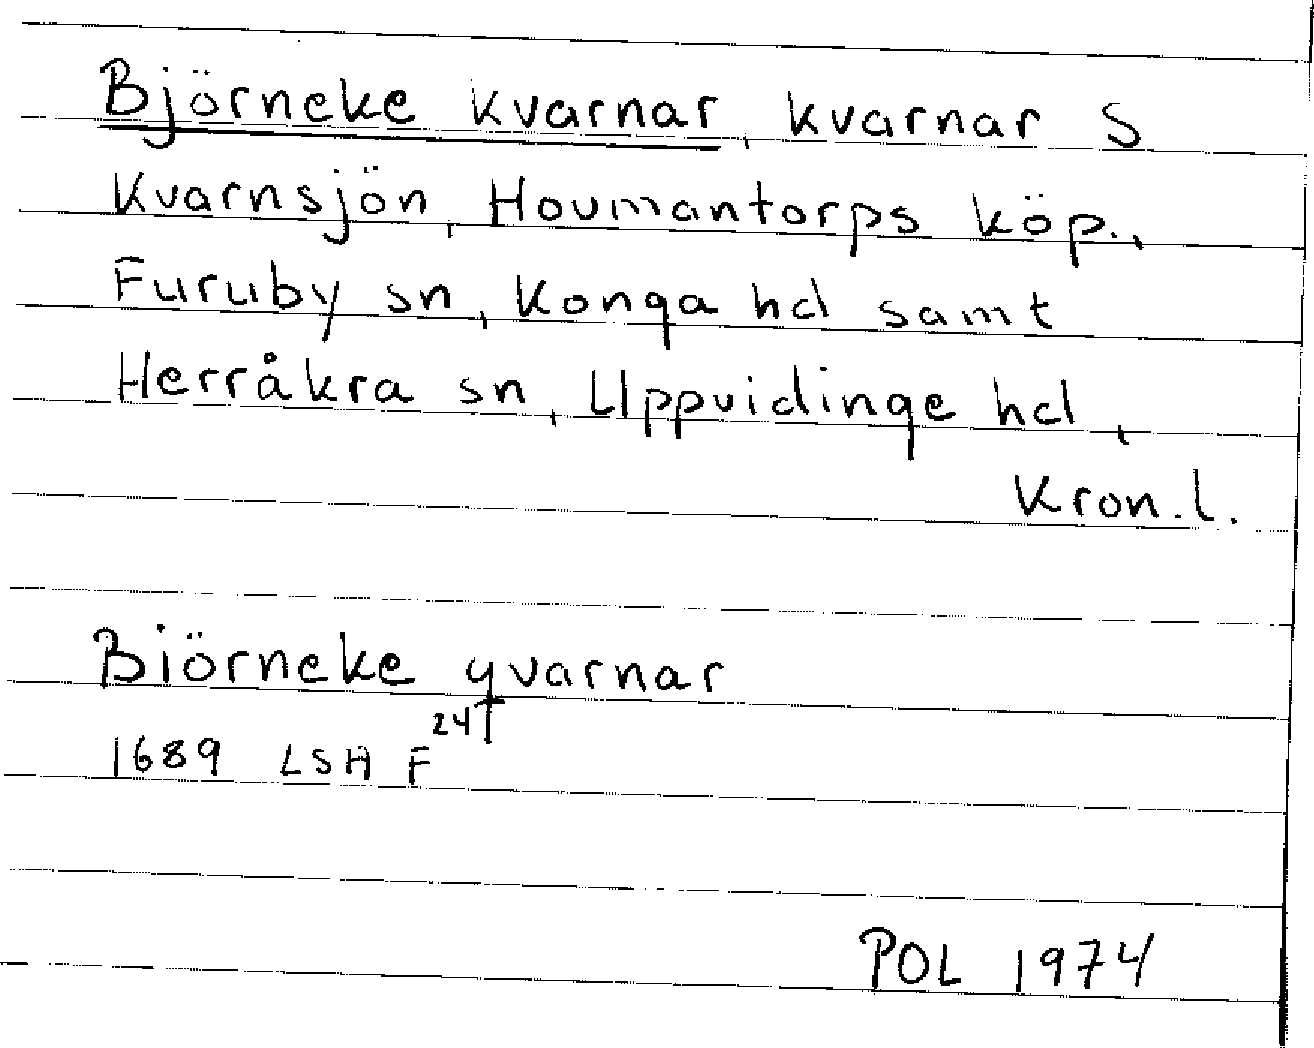 Björneke kvarnar, kvarnar S
Kvarnsjön, Hovmantorps köp.,
Furuby sn, Konga hd samt
Herråkra sn, Uppvidinge hd,
Kron.l.
Biörneke qvarnar
1689 LSH F 24
POL 1974